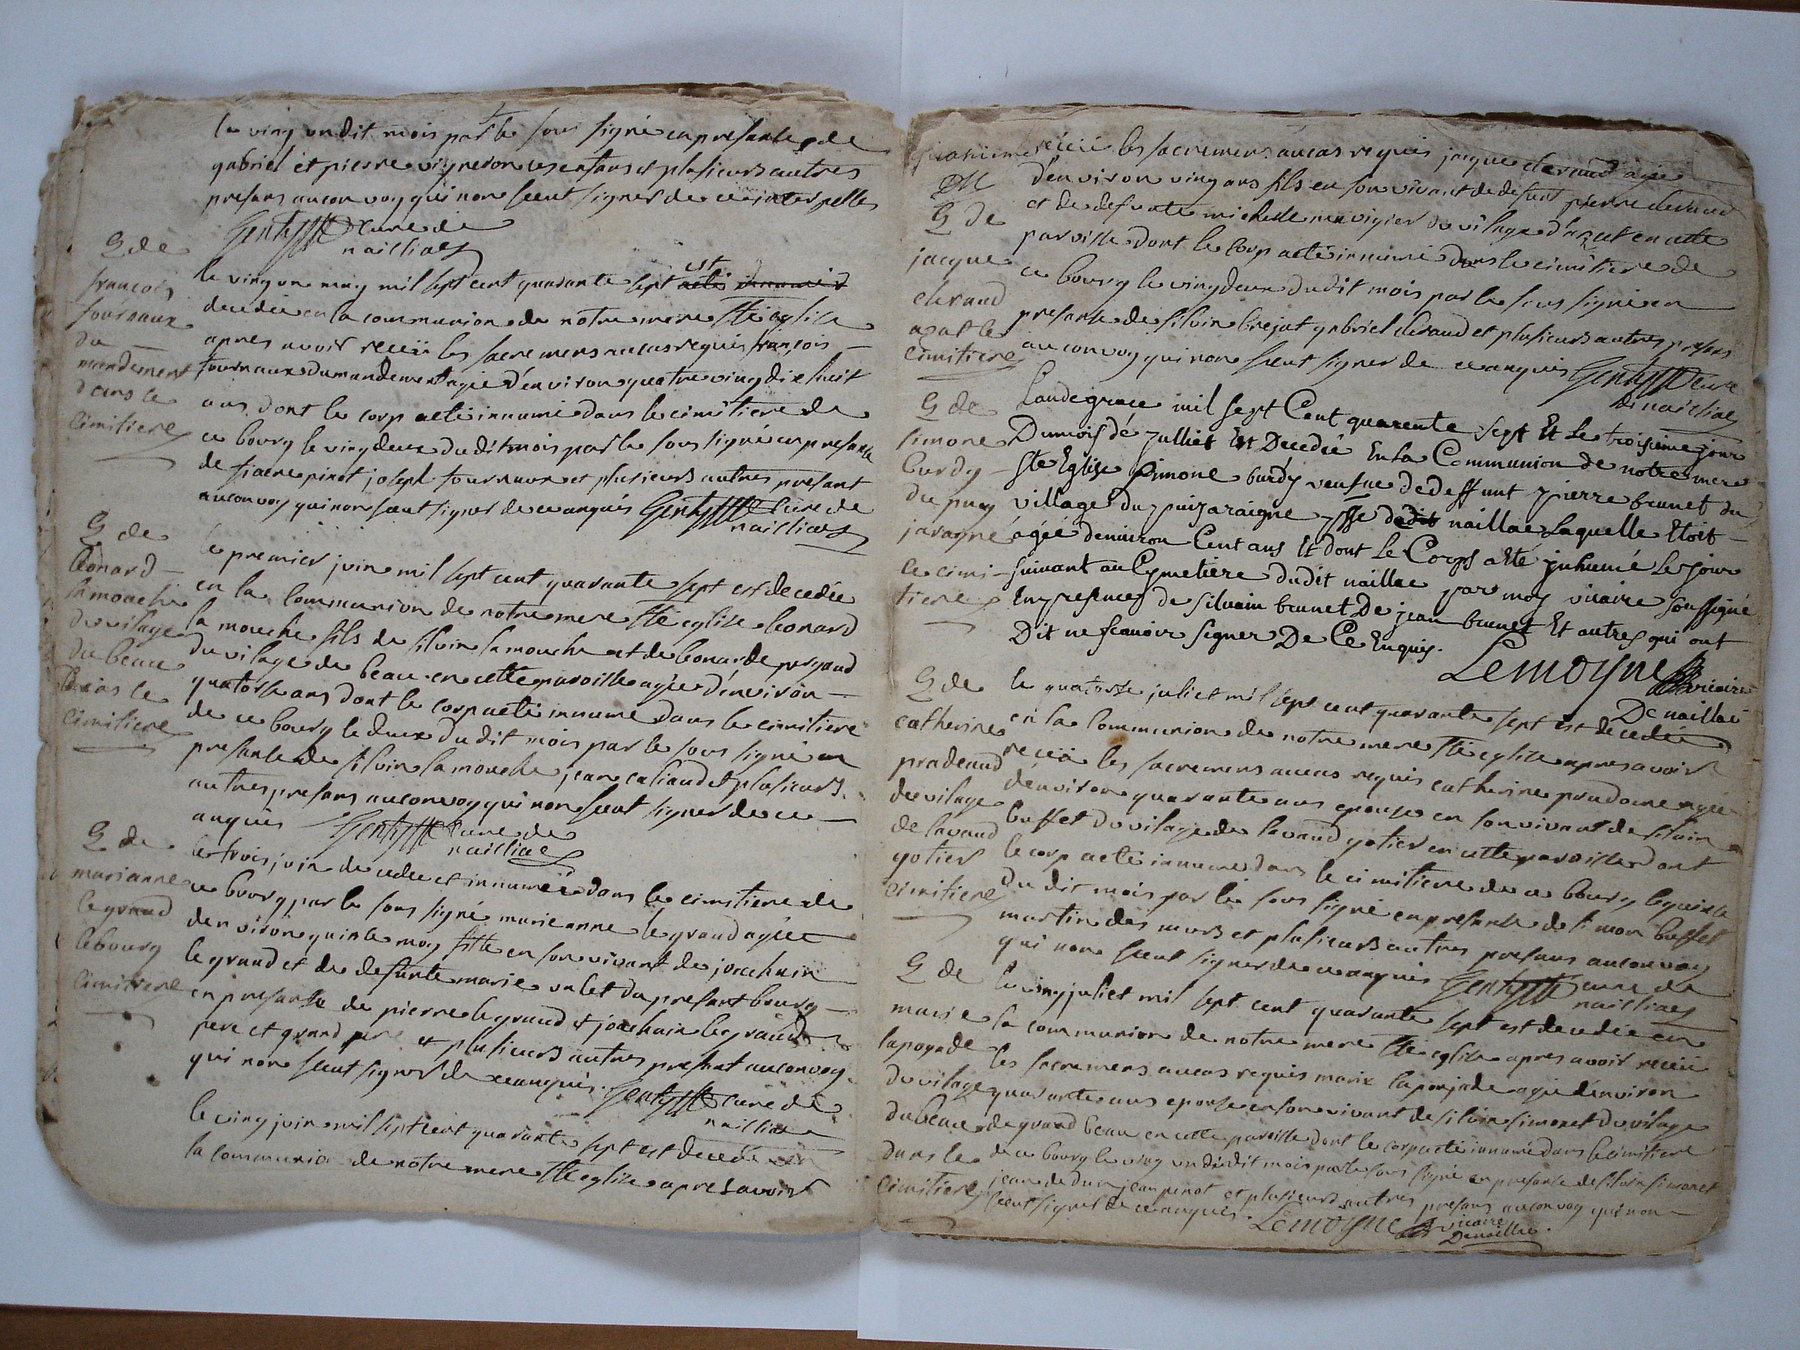 le ving un dit mois par le sous signé en presante de
gabriel et pierre vigneron ses enfans et plusieurs autres
presans au convoy qui non sceut signer de ce interpelles
curé de
nailliac
G de
francois
fournaux
du
mandement
dans le
cimitiere
le ving un may mil sept cent quarante sept est
decedée en la communion de notre mere Ste eglise
apres avoir receü les sacremens au cas requis françois
fournaux du mandement agée d'environ quatre ving dix huit
ans dont le corp a eté innumé dans le cimitiere de
ce bourg le ving deux du dit mois par le sous signé en presante
de pierre pinot joseph fournaux et plusieurs autres presant
au convoy qui non sceut signer de ce anqués curé de
nailliac
G de
leonard
la mouche
du vilage
du beau
dans le
cimitiere
le premier juin mil sept cent quarante sept est decedée
en la communion de notre mere Ste eglise leonard
la mouche fils de silvin la mouche et de leonarde
du vilage de beau en cette paroisse agée d'environ
quatorse ans dont le corp a eté innumé dans le cimitiere
de ce bourg le deux du dit mois par le sous signé en
presante de silvin la mouche jean caliaud et plusieurs
autres presans au convoy qui non sceut signer de ce
anqués curé de
nailliac
G de
marianne
le grand
le bourg
cimitiere
le trois juin decedée et innumée dans le cimitiere de
ce bourg par le sous signé marie anne le grand agée
denviron quinse moy fille en son vivant de joachain
le grand et de defunte marie valet du presant bourg
en presante de pierre le grand et joachain le grand
pere et grand pere et plusieurs autres presant au convoy
qui non sceut signer de ce anqués. curé de
nailliac
le ving juin mil sept cent quarante sept est decedé en
la communion de notre mere Ste eglise apres avoir
receü les sacremens au cas requis jacque clerand agée
d'environ ving ans fils en son vivant de defunt pierre clerand
et de defunte michelle vigier du vilage d'azat en cette
paroisse dont le corp a eté innumé dans le cimitiere de
ce bourg le ving deux du dit mois par le sous signé en
presante de silvin brejat gabriel clerand et plusieurs autres presans
au convoy qui non sceut signer de ce anqués curé
de nailliac
G de
jacque
clerand
azat le
cimitiere
G de
simone
burdy
du puy
jaragne
le cimi-
tiere
Lan de grace mil sept Cent quarente sept Et Le troisieme jour
Du mois de Julliet Est Decedée En La Communion de notre mere
Ste Eglise Simone burdy veufue de deffunt pierre brunet du
village du puijaraigne psse de naillac Laquelle Etoit
agée denuiron Cent ans Et dont Le Corps a Eté Inhumé Le jour
suiuant au Cymetiere dudit naillac par moy vicaire soussigné
En presences de silvain brunet De jean brunet Et autres qui ont
Dit ne scauoir signer De Ce Enquis.
Lemoyne vicaire
De naillac
G de
catherine
pradeaud
du vilage
de lavaud
gotier
cimitiere
le quatorse juliet mil sept cent quarante sept est decedée
en la communion de notre mere Ste eglise apres avoir
receü les sacremens au cas requis catherine agée
d'environ quarante ans epouse en son vivant de silvin
buffet du vilage de lavaud gotier en cette paroisse dont
le corp a eté innumé dans le cimitiere de ce bourg le quinse
du dit mois par le sous signé en presante de simon buffet
martin des murs et plusieurs autres presans au convoy
qui non sceut signer de ce anqués curé de
nailliac
G de
marie
lapogade
du vilage
du beau
dans le
cimitiere
le ving juliet mil sept cent quarante sept est decedée en
la communion de notre mere Ste eglise apres avoir receü
les sacremens au cas requis marie laponjade agée d'environ
quarante ans epouse en son vivant de silvin simonet du vilage
de grand beau en cette paroisse dont le corp a eté innumé dans le cimitiere
de ce bourg le ving un du dit mois par le sous signé en presante de silvin simonet
jean pinot et plusieurs autres presans au convoy qui non
sceut signer de ce anqués. Lemoyne vicaire
De naillac.